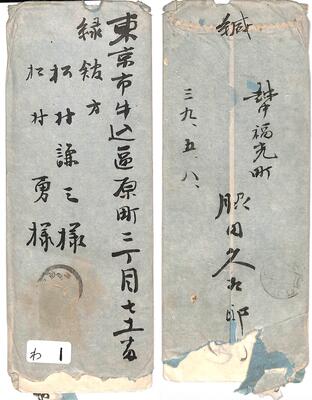 東京市牛込區原町三丁目七十五番
緑舘方
松村謙三様
松村勇様
わ 1
緘
越中福光町
三九、五、八、